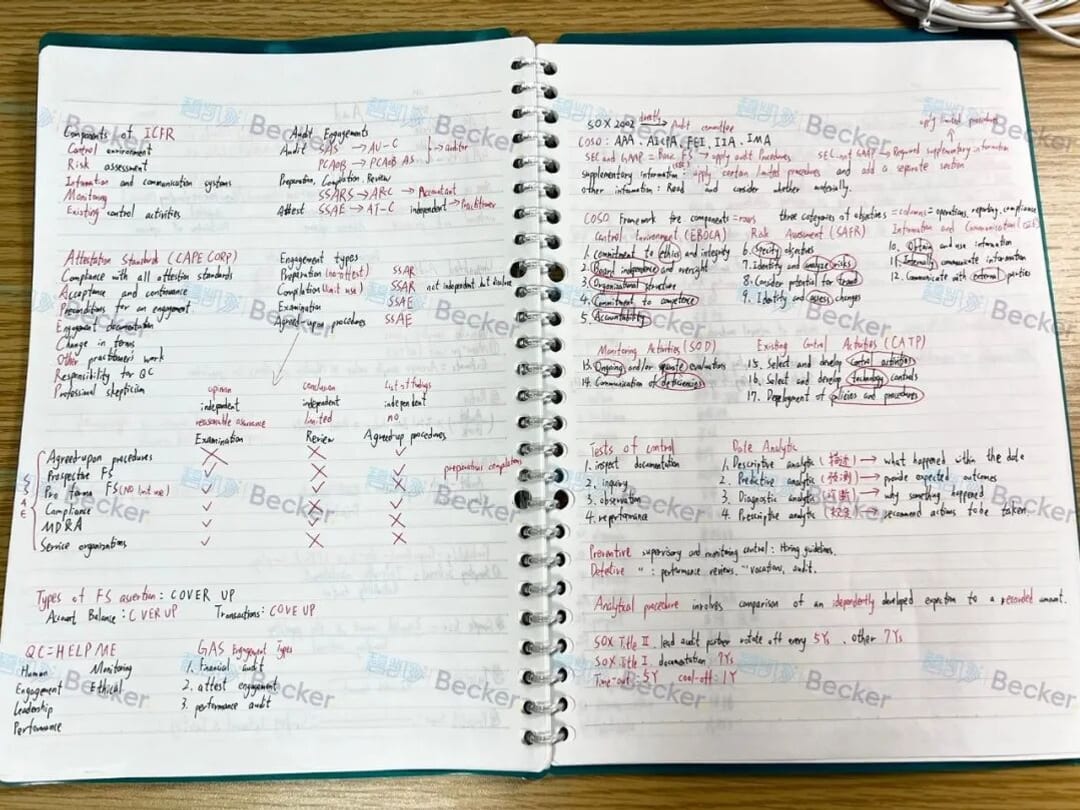 Components of ICFR
Control environment
Risk assessment
Information and communication systems
Monitoring
Existing control activities
Audit Engagements
Audit SAS → AU-C
PCAOB → PCAOB AS → auditor
Preparation, Compilation, Review
SSARS → AR-C → Accountant
Attest SSAE → AT-C independent → Practitioner
Attestation Standards (CAPE CORP)
Compliance with all attestion standards
Acceptance and continuance
Preconditions for an engagement
Engagement documentation
Change in terms
Other practitioner's work
Responsibility for QC
Professional skepticism
Engagement types
Preparation (no attest) SSAR
Compilation SSAR not independent but disclose
Examination SSAE
Agreed-upon procedures SSAE
opinion conclusion List of findings
independent independent independent
reasonable assurance limited no
Examination Review Agreed-up procedures
SSAE
Agreed-upon procedures ✗ ✗ ✓
Prospective FS ✓ ✗ ✓ preparation compilations
Pro forma FS (NO limit use) ✓ ✓ ✗
Compliance ✓ ✗ ✓
MD&A ✓ ✓ ✗
Service organizations ✓ ✗ ✗
Types of FS assertion: COVER UP
Account Balance: C VER UP Transactions: COVE UP
QC = HELP ME
Human Monitoring
Engagement Ethical
Leadership
Performance
GAS Engagement Types
1. financial audit
2. attest engagement
3. performance audit
SOX 2002 directly → Audit committee
COSO: AAA, AICPA, FEI, IIA, IMA
apply limited procedures
SEC and GAAP = Basic FS → apply audit Procedures SEC not GAAP → Required supplementary information
supplementary information: apply certain limited procedures and add a separate section
other information: Read and consider whether materially.
COSO Framework five components = rows three categories of objectives = columns = operations, reporting, compliance
Control Environment (EBOCA)
1. commitment to ethics and integrity
2. Board independence and oversight
3. Organizational structure
4. Commitment to competence
5. Accountability
Risk Assessment (SAFR)
6. Specify objectives
7. Identify and analyze risks
8. Consider potential for fraud
9. Identify and assess changes
Information and Communication
10. Obtain and use information
11. Internally communicate information
12. Communicate with external parties
Monitoring Activities (SOD)
13. Ongoing and/or separate evaluations
14. Communication of deficiencies
Existing Control Activities (CATP)
15. Select and develop control activities
16. Select and develop technology controls
17. Deployment of policies and procedures
Tests of control
1. inspect documentation
2. inquiry
3. observation
4. reperformance
Data Analytic
1. Descriptive analytic (描述) → what happened within the data
2. Predictive analytic (预测) → provide expected outcomes
3. Diagnostic analytic (诊断) → why something happened
4. Prescriptive analytic → recommend actions to be taken.
Preventive supervisory and monitoring control: Hiring guidelines.
Detective " : performance reviews, vacations, audit.
Analytical procedure involves comparison of an independently developed expection to a recorded amount.
SOX Title II. lead audit partner rotate off every 5Ys, other 7Ys
SOX Title I. documentation 7Ys
Time-out: 5Y cool-off: 1Y
Becker